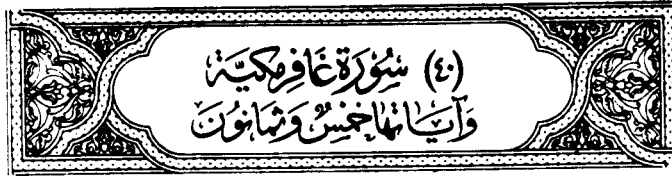 (٤٠) سُورَة غَافِر مَكيَّة
وَآيَاتهَا خَمْسٌ وَثمَانُونَ